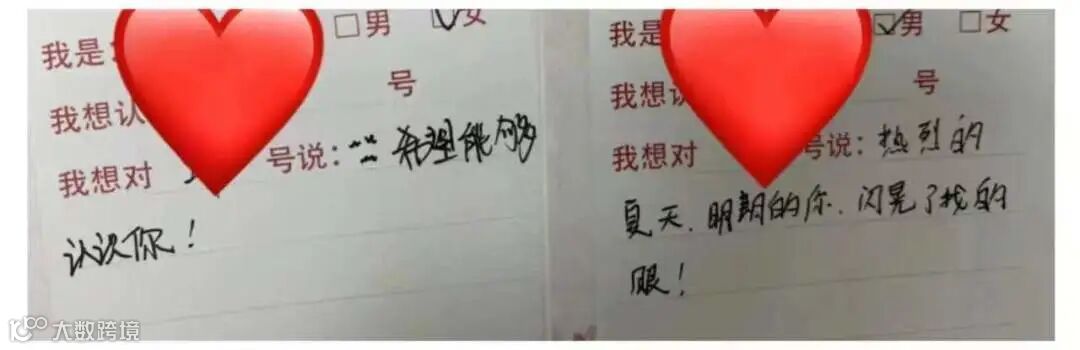 我是 □男 ☑女
我想认 号
我想对 号说：希望能够
认识你！
我是 ☑男 □女
我想认 号
我想对 号说：热烈的
夏天、明朗的你、闪晃了我的
眼！
大数跨境